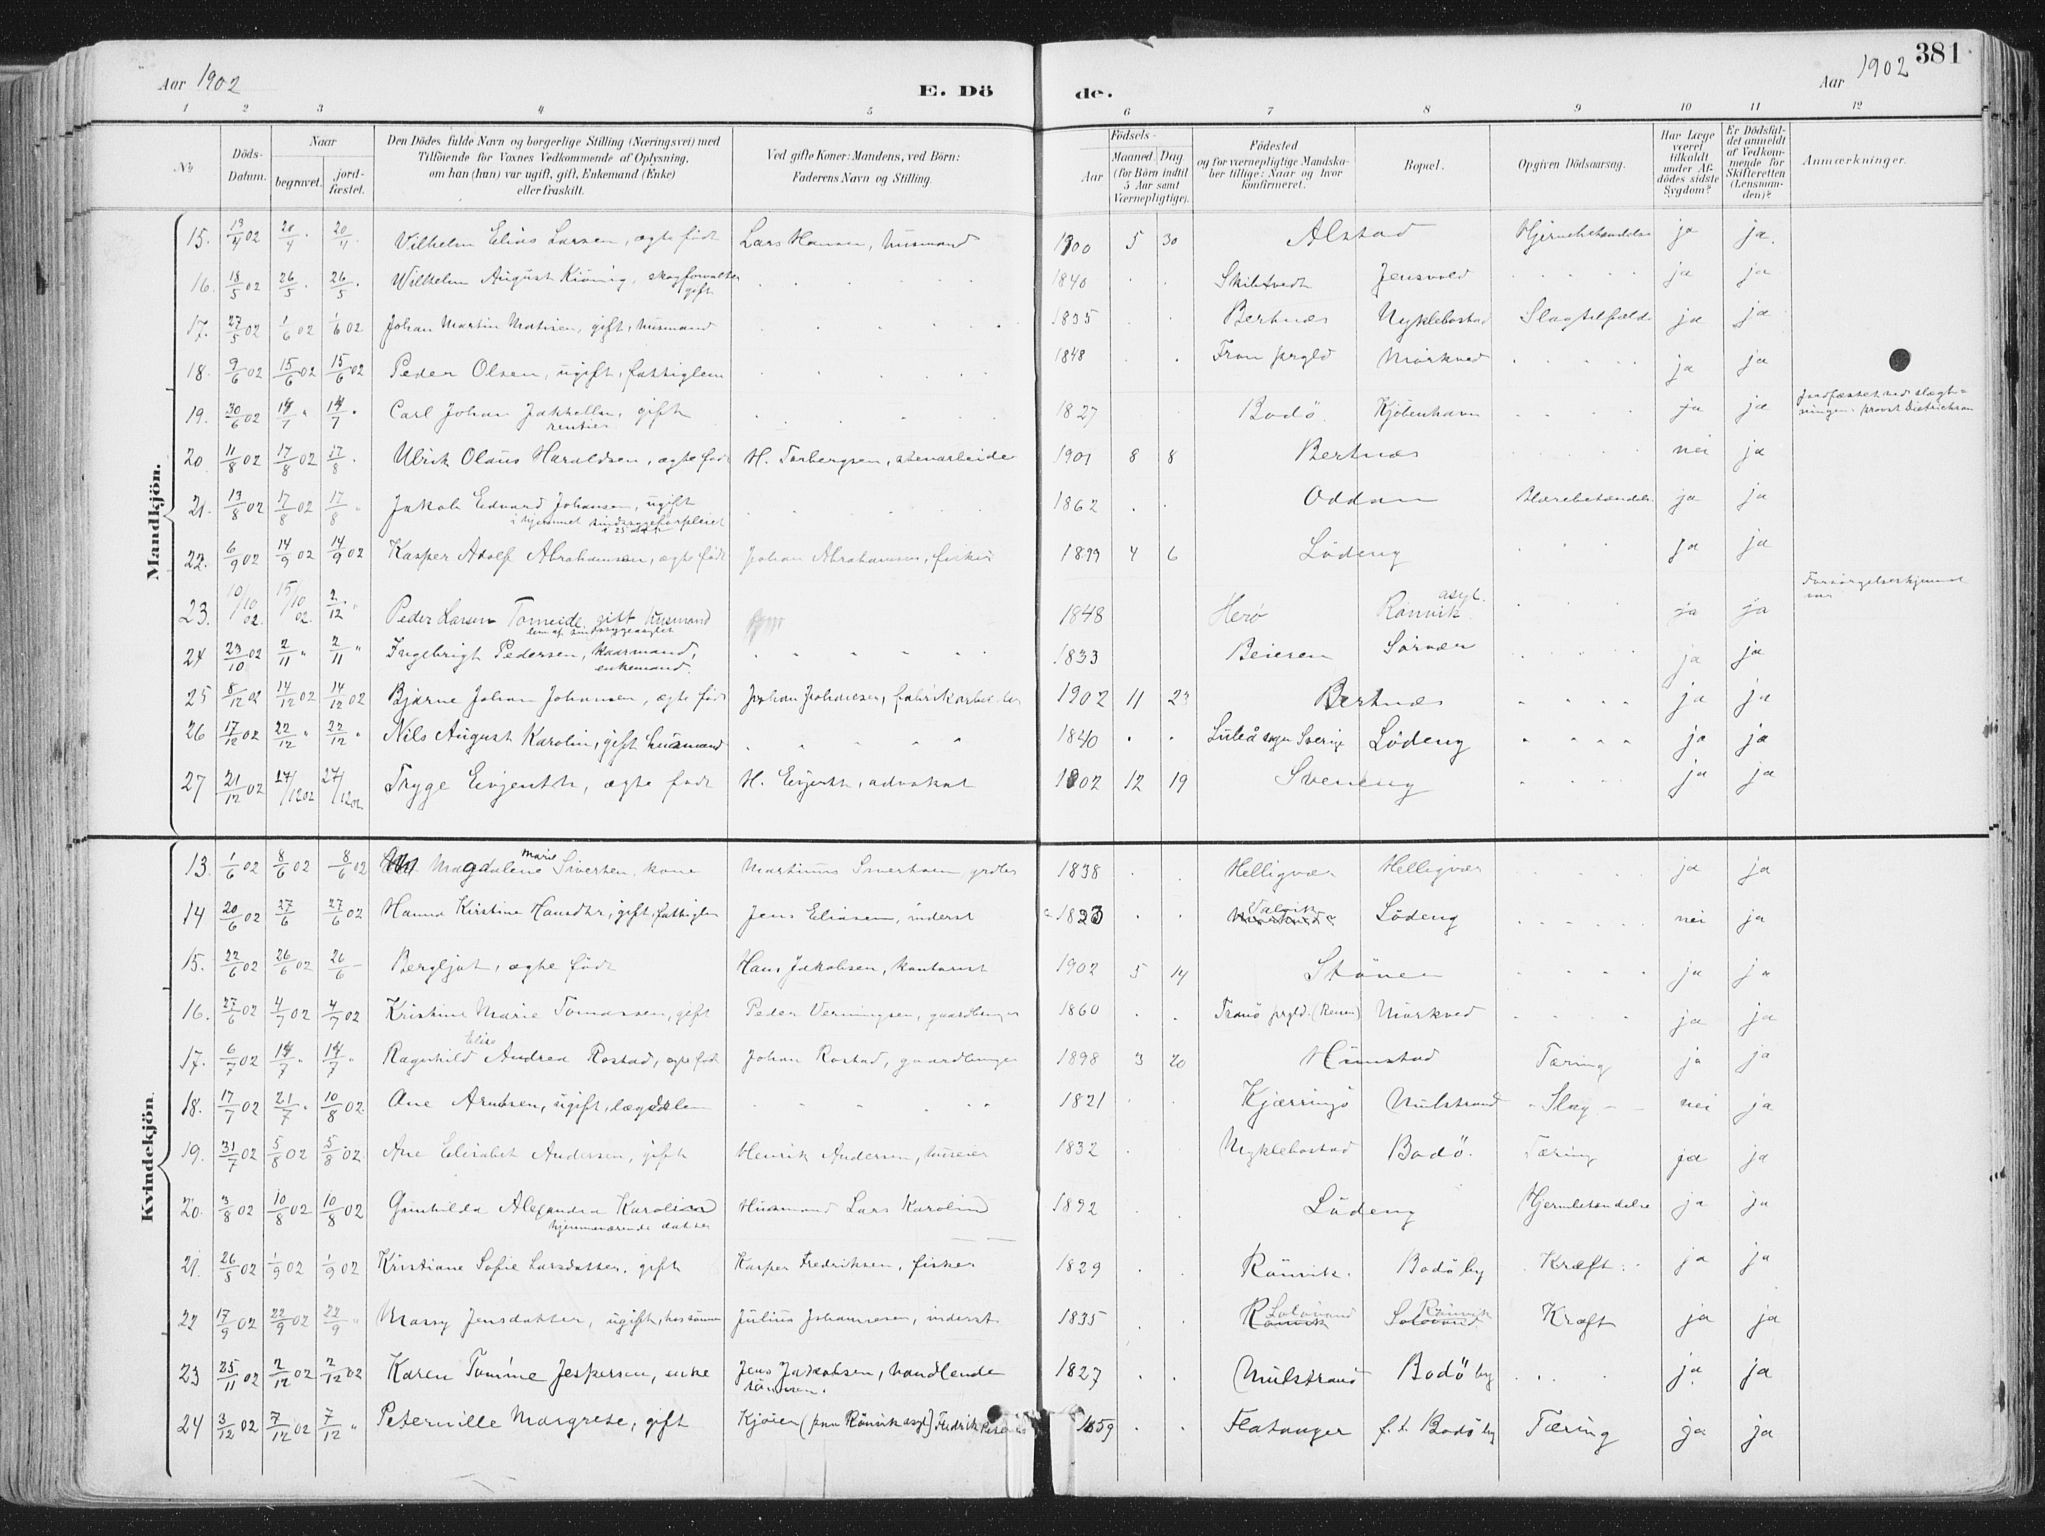 Aar 1902
E. Dö de.
Aar 1902
381
1 2 3 4 5 6 7 8 9 10 11 12
No
Döds-Datum.
Naar
begravet.
jord-fæstet.
Den Dödes fulde Navn og borgerlige Stilling (Næringsvei) med
Tilföiende for Voxnes Vedkommende af Oplysning,
om han (hun) var ugift, gift, Enkemand (Enke)
eller fraskilt.
Ved gifte Koner: Mandens, ved Börn:
Faderens Navn og Stilling.
Födsels-
Aar
Maaned Dag
(for Börn indtil 5 Aar samt Værnepligtige).
Födested
og for værnepligtige Mandska-
ber tillige: Naar og hvor
konfirmeret.
Bopæl.
Opgiven Dödsaarsag.
Har Læge været tilkaldt under Af-dödes sidste Sygdom?
Er Dödsfal-det anmeldt af Vedkom-mende for Skifteretten (Lensman-den)?
Anmærkninger.
Mandkjön.
15. 13/4 02 20/4 20/4 Vilhelm Elias Larsen, ægte født Lars Hansen, husmand 1900 5 30 Alstad Hjernebetændelse ja ja
16. 18/5 02 26/5 26/5 Wilhelm August skogforvalter gift 1840 Jensvold ja ja
17. 27/5 02 1/6 02 1/6 02 Johan Martin Matisen, gift, husmand 1835 Bertnæs Nyklebostad Slagtilfælde ja ja
18. 9/6 02 15/6 02 15/6 02 Peder Olsen, ugift, fattiglem 1848 prgld Mørkved ja ja
19. 30/6 02 14/7 14/7 Carl Johan Jakhelln, gift rentier 1827 Bodö Kjöbenhavn ja ja Jordfæstet ved provst Dietrichson
20 11/8 02 17/8 02 17/8 Ulrik Olaus Haraldsen, ægte født H. Torbergsen, stenarbeide 1901 8 8 Bertnæs nei ja
21. 13/8 02 17/8 02 17/8 Jakob Edvard Johansen, ugift i hjemmet 1862 Oddan Blærebetændelse ja ja
22. 6/9 02 14/9 02 14/9 02 Kasper Adolf Abrahamsen, ægte født Johan Abrahamsen, fisker 1899 4 6 Löding ja ja
23. 10/10 02 15/10 02 2/12 Peder Larsen Tomeide gift husmand 1848 Herø Rønvik asyl. ja ja
24 23/10 02 2/11 2/11 Ingebrigt Pedersen, kaarmand, enkemand. 1833 Beiern Sörvær ja ja
25 8/12 02 14/12 02 14/12 02 Bjarne Johan Johansen, ægte født Johan Johansen, fabrikarbeider 1902 11 23 Bertnæs ja ja
26 17/12 02 22/12 22/12 Nils August Karolin, gift husmand 1840 Luleå sogn Sverige Lödeng ja ja
27 21/12 02 27/12 02 27/12 02 Tryge Evjenth, ægte født H. Evjenth, advokat 1902 12 19 Sveneng ja ja
Kvindekjön.
13. 1/6 02 8/6 02 8/6 02 Magdalene Marie Sivertsen, kone Martinus Sivertsen 1838 Helligvær Helligvær ja ja
14 20/6 02 27/6 27/6 02 Hanna Kirstine Hansdtr, gift, fattiglem Jens Eliasen, inderst 1823 Lödeng nei ja
15. 22/6 02 26/6 02 26/6 Bergljot, ægte født Hans Jakobsen, kontorist 1902 5 14 Stönen ja ja
16. 27/6 02 4/7 02 4/7 02 Kristine Marie Tomassen, gift Peder gaardbruger 1860 Tranö prgld. Mørkved ja ja
17. 6/7 02 14/7 14/7 Ragnhild Elise Andrea Rostad, ægte født Johan Rostad, gaardbruger 1898 3 20 Hunstad Tæring ja ja
18. 17/7 02 21/7 10/8 02 Ane Arntsen, ugift, lægdslem 1821 Kjærringö Mulstrand Slag nei ja
19. 31/7 02 5/8 02 5/8 02 Ane Elisabet Andersen, gift Henrik Andersen, huseier 1832 Nyklebostad Bodö. Tæring ja ja
20. 3/8 02 10/8 02 10/8 02 Gunhilda Alexandra Karolina hjemmeværende datter Husmand Lars Karolind 1892 Lödeng Hjernebetændelse ja ja
21. 26/8 02 1/9 02 1/9 02 Kristiane Sofie Larsdatter, gift Kasper Fredriksen, fisker 1829 Rönvik. Bodö by Kræft ja ja
22 17/9 02 22/9 02 22/9 Massy Jensdatter, ugift, hos sönnen Julius Johannesen, inderst 1835 Rönvik Kræft ja ja
23 25/11 02 2/12 02 2/12 02 Karen Tomine Jespersen, enke Jens Jakobsen, handlende sönnen. 1827 Mulstrand Bodö by ja ja
24 3/12 02 7/12 02 7/12 Peternille Margrete, gift Kjöien Rönvik asyl) Fredrik 1859 Flatanger f. t. Bodö by Tæring ja ja